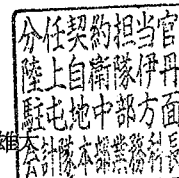 分任契約担当官
陸上自衛隊伊丹
駐屯地中部方面
会計隊本部業務科長
雄